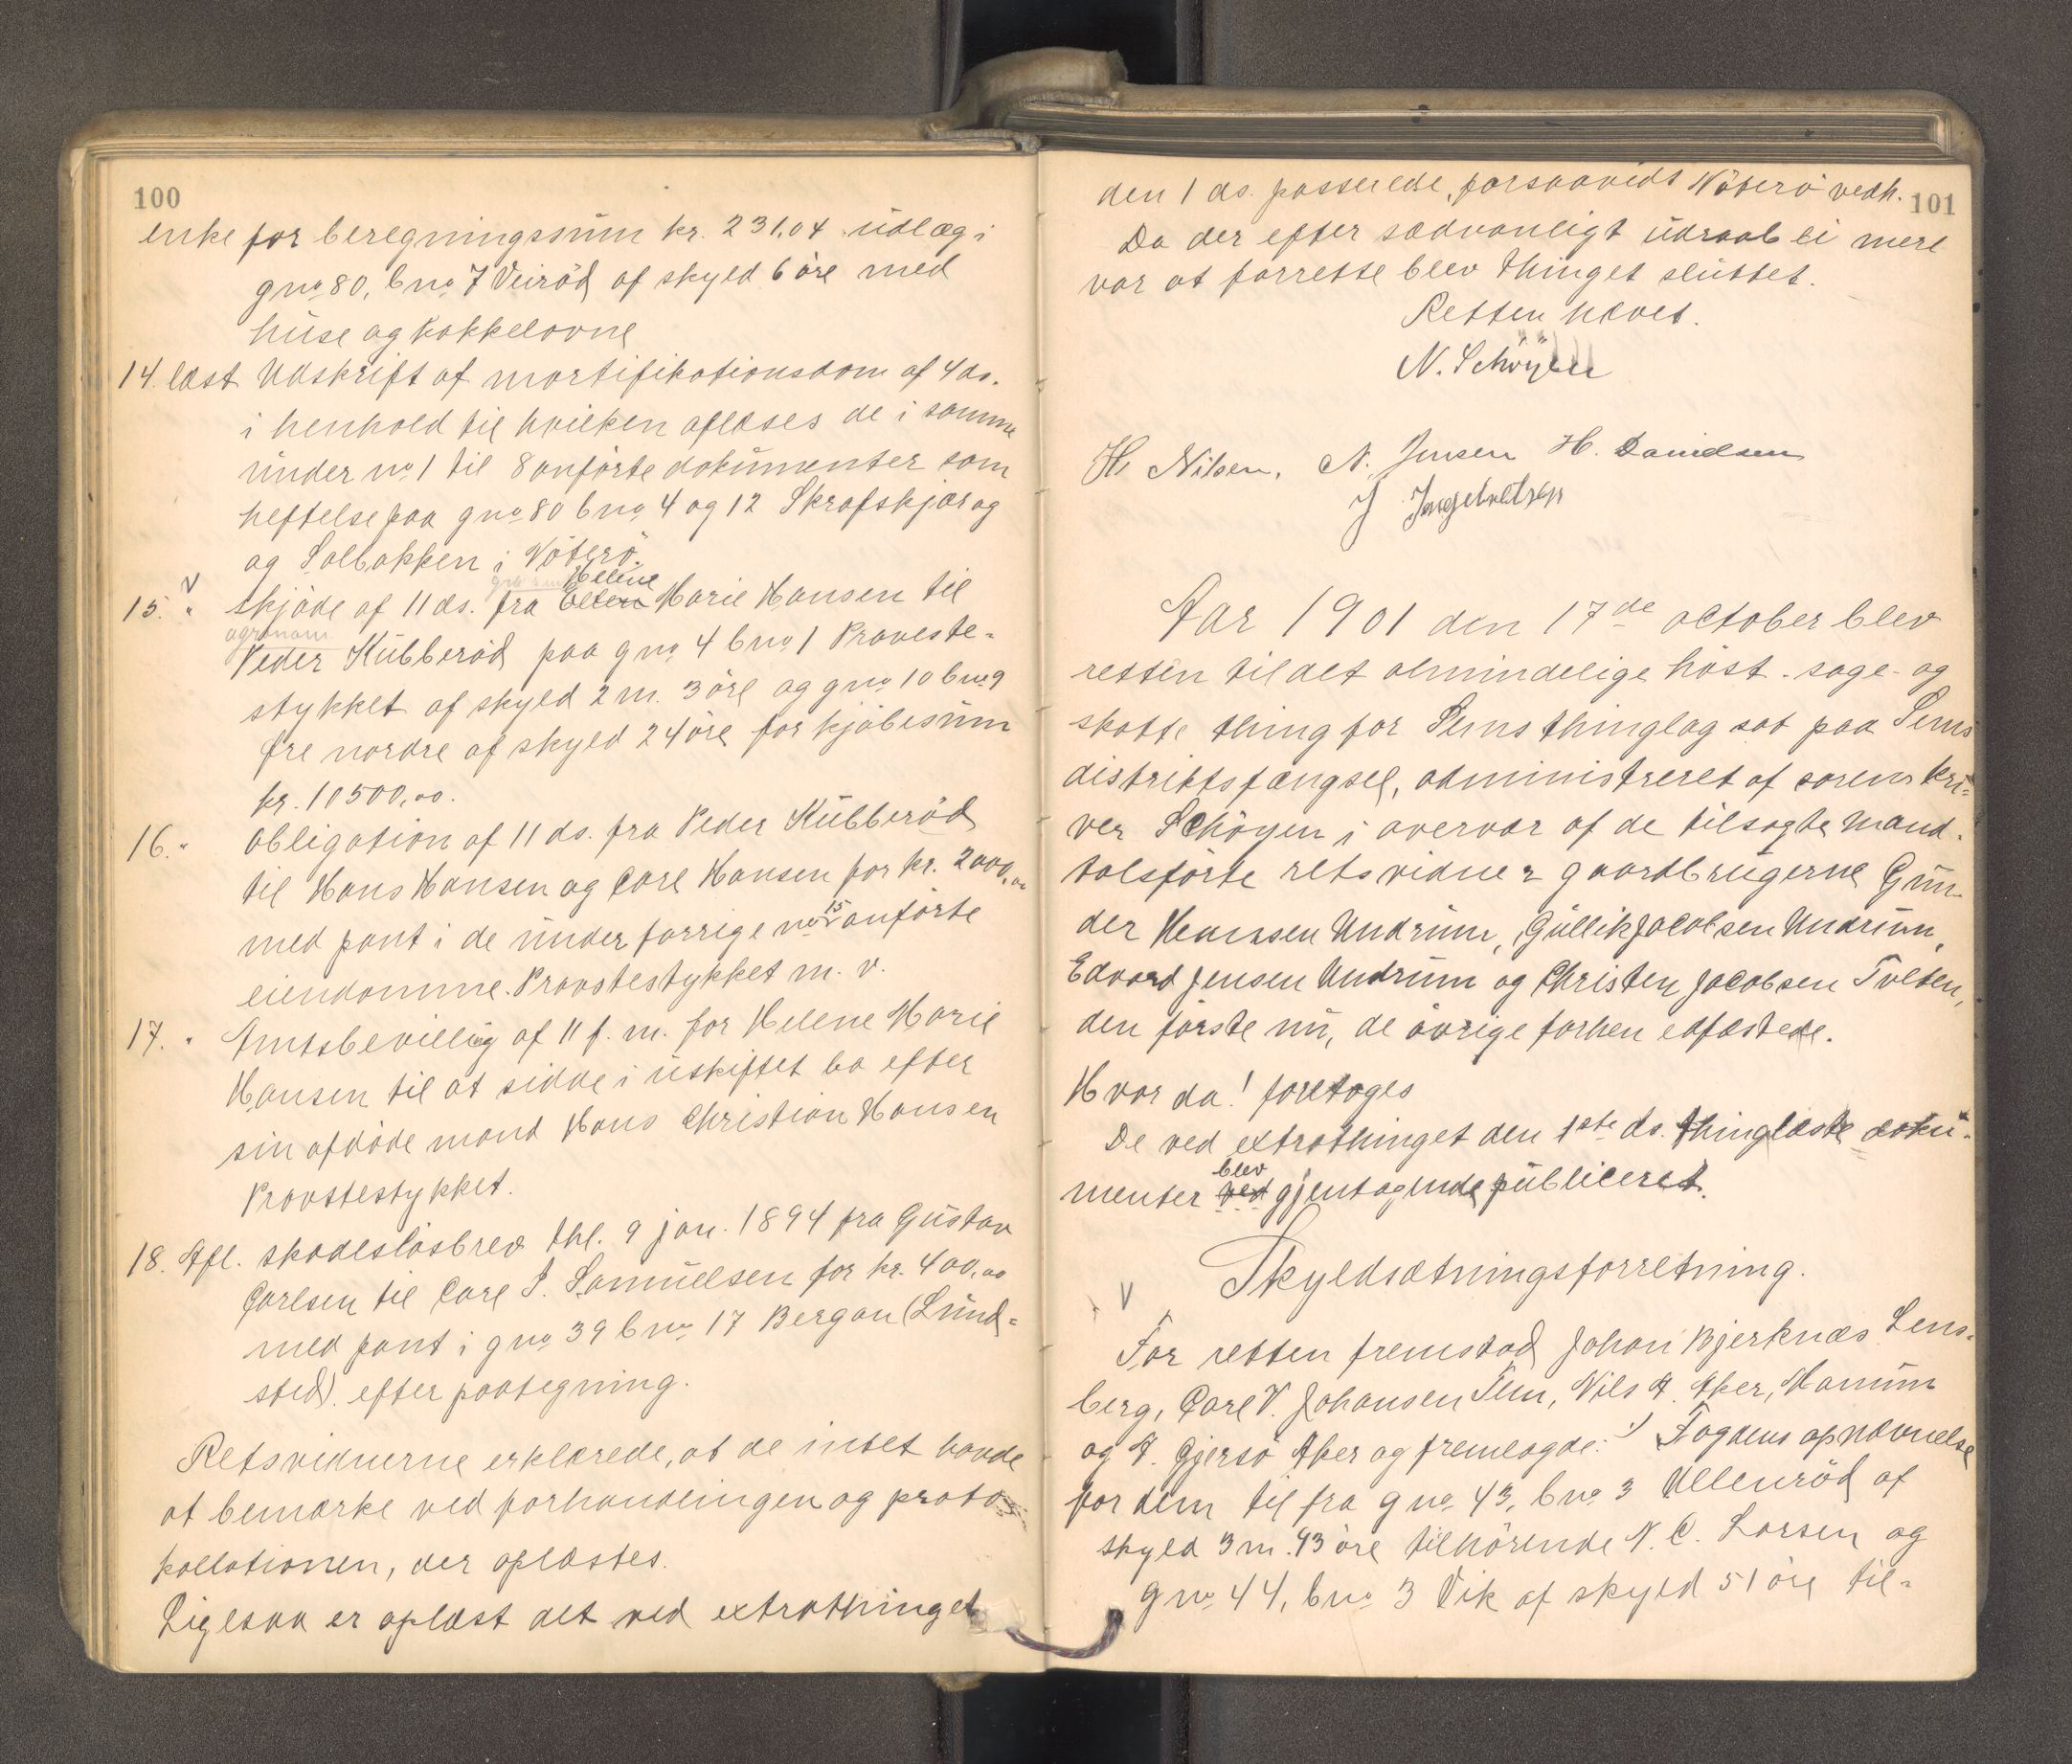 100
enke for beregningssum kr. 231,04 udlæg i
gno 80, bno 7 Veiröd af skyld 6 öre med
huse og kakkelovne
14. læst Udskrift af mortifikationsdom af 4 ds.
i henhold til hvilken aflæses de i samme
under no 1 til 8 anförte dokumenter som
heftelse paa gno 80 bno 4 og 12 Skrafskjær og
og Solbakken i Nöterö.
Helene
15. " v skjöde af 11 ds. fra Ellen Marie Hansen til
agronom
Peder Kubberöd paa gno 4 bno 1 Proveste-
stykket af skyld 2 m. 3 öre og gno 10 bno 9
Øre nordre af skyld 24 öre for kjöbesum
kr. 10500,00.
16. " Obligation af 11 ds. fra Peder Kubberöd
til Hans Hansen og Carl Hansen for kr. 2000,00
med pant i de under forrige no 15 anförte
eiendomme. Provstestykket m. v.
17. " Amtsbevilling af 11 f. m. for Helene Marie
Hansen til at sidde i uskiftet bo efter
sin afdöde mand Hans Christian Hansen
Provstestykket.
18. Afl. skadeslösbrev thl. 9 jan. 1894 fra Gustav
Carlsen til Carl S. Samuelsen for kr. 400,00
med pant i gno 39 bno 17 Bergan (Lund-
sted) efter paategning.
Retsvidnerne erklærede, at de intet havde
at bemærke ved forhandlingen og proto-
kollationen, der oplæstes.
Ligesaa er oplæst det ved extrathinget
101
den 1 ds. passerede, forsaavidt Nöterö vedk.
Da der efter sædvanligt udraab ei mere
var at forrette blev thinget sluttet.
Retten hævet.
N. Schöyen
H. Nilsen. N. Jensen H. Danielsen
J Ingebretsen
Aar 1901 den 17de october blev
retten til det almindelige höst- sage- og
skatte thing for Sems thinglag sat paa Sems
distriktsfængsel, administreret af sorenskri-
ver Schöyen i overvær af de tilsagte mand-
talsförte retsvidner gaardbrugerne Gun-
der Hansen Undrum, Gullik Jacobsen Undrum,
Edvard Jensen Undrum og Christen Jacobsen Tveten,
den förste nu, de övrige forhen edfæstede.
Hvor da! foretoges
De ved extrathinget den 1ste ds. thinglæste doku-
menter ved blev gjentagende publiceret.
Skyldsætningsforretning.
V
For retten fremstod Johan Bjerknæs Lens-
berg, Carl V. Johansen Sem, Nils A. Aker, Manum
og A. Gjersö Aker og fremlagde: Fogdens opnævnelse
for dem til fra gno 43, bno 3 Ullenröd af
skyld 3 m. 43 öre tilhörende N. C. Larsen og
gno 44, bno 3 Vik af skyld 51 öre til-